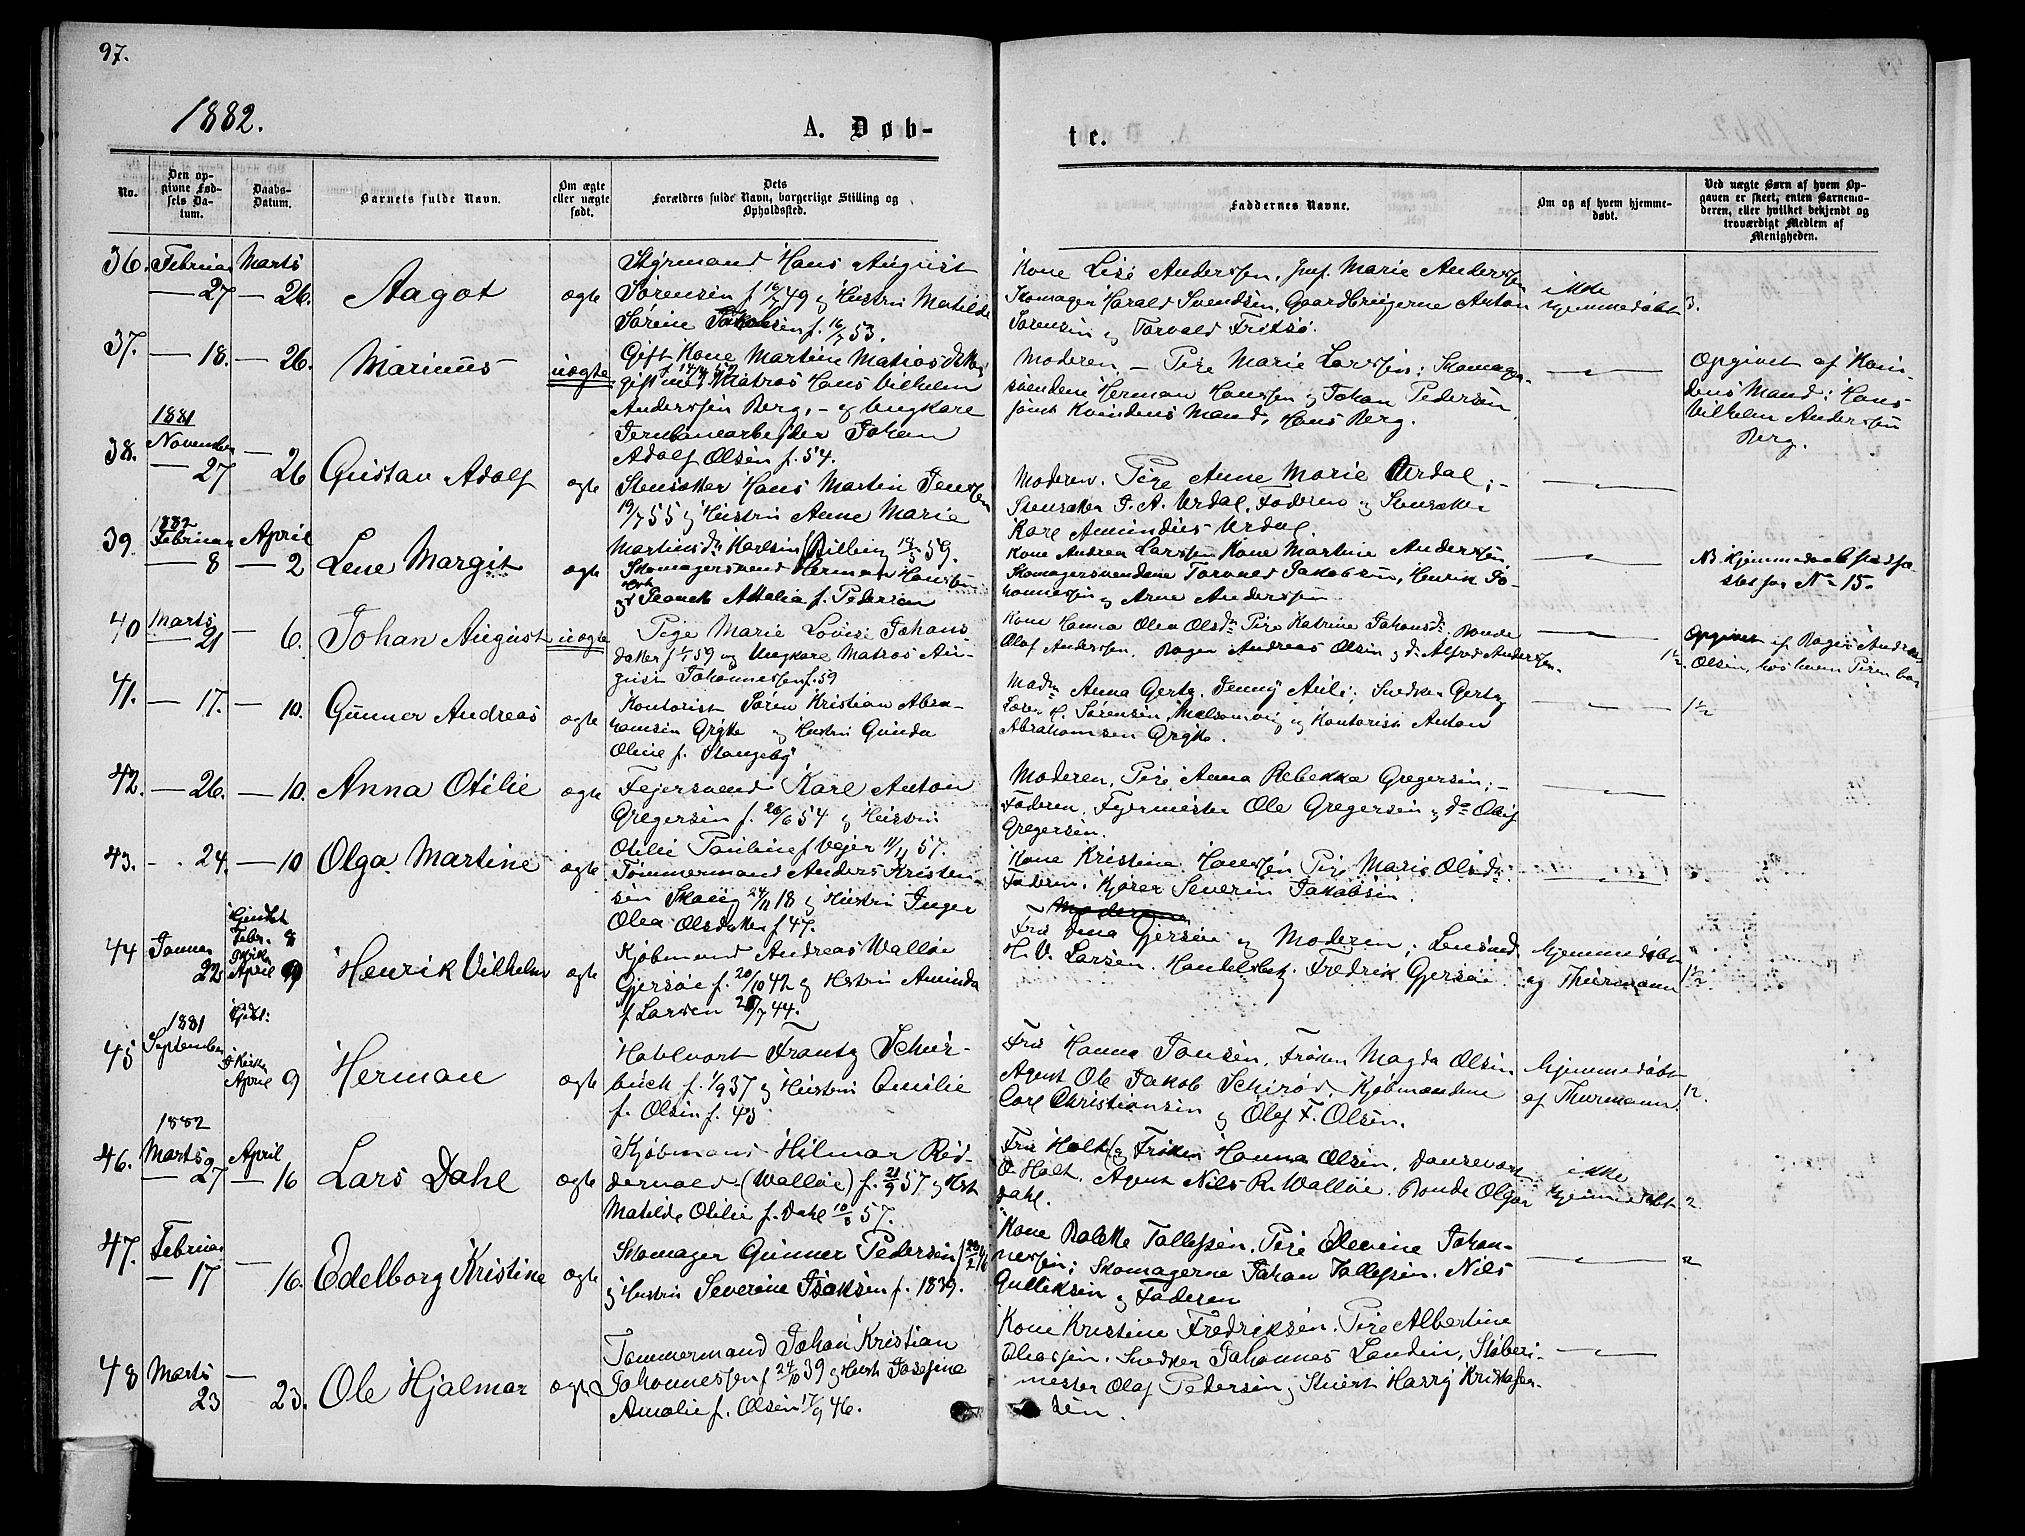 97.
1882.
A. Døb-
te.
No.
Den op-
givne Fød-
sels Da-
tum.
Daabs-
Datum.
Barnets fulde Navn.
Om ægte
eller uægte
født.
Dets
Forældres fulde Navn, borgerlige Stilling og
Opholdssted.
Faddernes Navne.
Om og af hvem hjemme-
døbt.
Ved uægte Børn af hvem Op-
gaven er skeet, enten Barnemo-
deren, eller hvilket bekjendt og
troværdigt Medlem af
Menigheden.
36. Februar Marts
27 — 26. Aagot ægte
Styrmand Hans August
Sørensen f. 49 og Hustru Matilde
Sørine Jakobsen f. 16/7 53.
Kone Lise Anderssen, Marie Anderssen
Skomager Harald Svendsen, Gaardbrugerne Anton
Sørensen og Torvald Fritsø.
ikke
hjemmedøbt 3.
37. — 18. — 26. Marinus uægte
Gift Kone Martine
gift med Matros Hans Vilhelm
Anderssen Berg, — og Ungkarl
Jernbanearbejder Johan
Adolf Olsen f. 54.
Moderen — Pige Marie Larssen; Skomager-
svendene Herman Hanssen og Johan Pedersen,
samt Kvindens Mand, Hans Berg.
Opgivet af Kvin-
dens Mand: Hans
Vilhelm Anderssen
Berg.
38. 1881
November
— 27 — 26 Gustav Adolf ægte
Hans Martin Jenssen
19/7 55 og Hustru Anne Marie
Moderen. Pige Anne Marie Urdal; —
J. A. Urdal, Faderen og
Karl Amundius Urdal.
39. 1882
Februar April
— 8 — 2 Lene Margit ægte
Martinsdr. Karlsen 59.
Skomagersvend Herman Hanssen
og Attalia f. Pedersen
Kone Andrea Larssen Kone Martine Anderssen,
Skomagersvendene Torvald Jakobsen, Henrik Jo-
hannessen og Arne Anderssen
NB Hjemmedaab
No 15.
40 Marts
— 21 — 6. Johan August uægte
Pige Marie Lovise Johans-
datter f. 59 og Ungkarl Matros Au-
gust Johannessen f. 59
Kone Hanna Olea Olsdr. Pige Katrine Johansdr. Bonde
Olaf Anderssen, Bager Andreas Olsen og do Alfred Anderssen.
1½
Opgivet af Bager Andreas
Olsen, hos hvem Pigen bor
41. — 17. — 10. Gunnar Andreas ægte
Kontorist Søren Kristian Abra-
hamsen og Hustru Gunda
Oline f. Stangeby
Madm Anna Gertz, Jenny; Snedker Gertz
Sørensen, Melsomvig og Kontorist Anton
Abrahamsen
1½
42. — 26. — 10. Anna Otilie ægte
Fejersvend Karl Anton
Gregersen f. 26/6 54 og Hustru
Otilie Pauline f Vejer 57.
Moderen, Pige Anna Rebekka Gregersen; —
Faderen, Fejermester Ole Gregersen og do Oluf
Gregersen.
43. — 24. — 10 Olga Martine ægte
Tømmermand Anders Kristen-
sen 18 og Hustru Inger
Olea Olsdatter f 47.
Kone Kristine Hanssen Pige Marie Olsdr.
Faderen, Kjører Severin Jakobsen.
44 Januar
22 Hjemdøbt
Febr. 8
i Kirken
April 9
Henrik Vilhelm ægte
Kjøbmand Andreas Walløe
Gjersøe f. 20/10 42 og Hustru Aminda
f Larsen 44.
Moderen
Fru Dina Gjersøe og Moderen; Lensmd
H. V. Larsen. Handelsbetj. Fredrik Gjersøe.
hjemmedøbt
og Thurmann 1½
45 1881
September
Hjdbt:
i Kirken
April 9 Herman ægte
Frantz Schür-
buck f. 1/9 37 og Hustru Amilie
f. Olsen f. 45
Fru Hanna Jansen. Frøken Magda Olsen
Agent Ole Jakob Schirød, Kjøbmændene
Carl Christiansen og Olaf F. Olsen.
hjemmedøbt
af Thurmann 12.
46. 1882
Marts April
— 27 — 16 Lars Dahl ægte
Kjøbmand Hilmar Rid-
dervold (Walløe) f. 21/9 57 og Hst
Matilde Otilie f. Dahl 57.
Fru Holt og Frøken Hanna Olsen,
O. Holt, Agent Nils R. Walløe. Bonde Olgar
Dahl.
ikke
hjemmedøbt 2
47. Februar
— 17 — 16. Edelborg Kristine ægte
Skomager Gunner Pedersen
og Hustru Severine Isaksen f. 1839.
Kone Tollefsen, Pige Elevine Johan-
nessen; Skomagerne Johan Tollefsen. Nils
Gulliksen og Faderen
2
48 Marts
23 — 23. Ole Hjalmar ægte
Tømmermand Johan Kristian
Johannessen f 24/10 39 og Hustr Josefine
Amalie f. Olsen 46.
Kone Kristine Fredriksen. Pige Albertine
Oleassen. Snedker Johannes Landin, Støberi-
mester Olaf Pedersen og Harry Kristoffer-
sen.